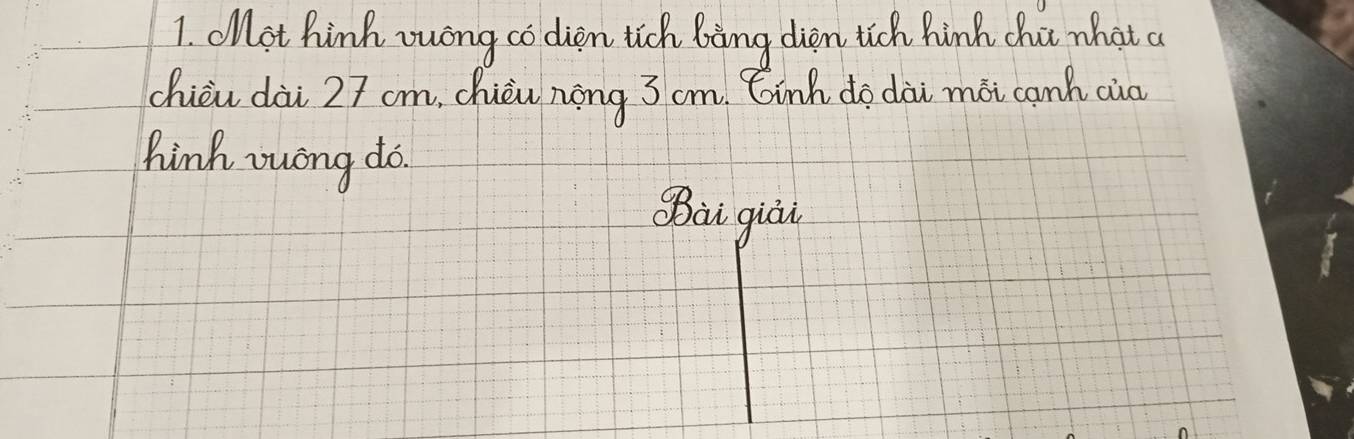 1. Một hình vuông có diện tích bằng diện tích hình chữ nhật c
chiều dài 27 cm, chiều rộng 3 cm. Tính độ dài mỗi cạnh của
hình vuông đó.
Bài giải